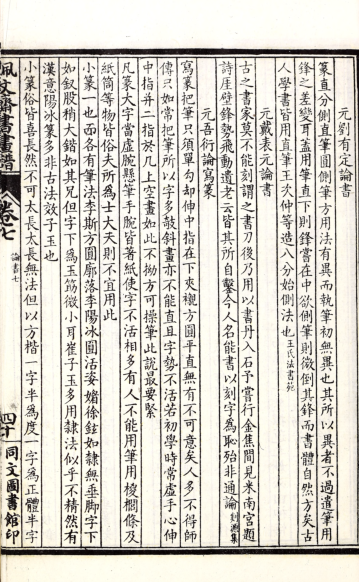 元劉有定論書
篆直分側直筆圓側筆方用法有異而執筆初無異也其所以異者不過遣筆用
鋒之差變耳蓋用筆直下則鋒常在中欲側筆則微倒其鋒而書體自然方矣古
人學書皆用直筆王次仲等造八分始側法也王氏法書苑
元戴表元論書
古之書家莫不能刻謂之書刀後乃用以書丹入石予嘗行金焦間見米南宮題
詩厓壁鋒勢飛動遺老云皆其所自鑿今人名能書以刻字為恥殆非通論剡源集
元吾衍論寫篆
寫篆把筆只須單勾却伸中指在下夾襯方圓平直無有不可意矣人多不得師
傳只如常把筆所以字多敧斜畫亦不能直且字勢不活若初學時當虛手心伸
中指并二指於几上空畫如此不拗方可操筆此說最要緊
凡篆大字當虛腕懸筆手腕皆著紙使字不活相多有人不能用筆用椶櫚條及
紙筒等物皆俗夫所為士大夫則不宜用此
小篆一也而各有筆法李斯方圓廓落李陽冰圓活姿媚徐鉉如隸無垂脚字下
如釵股稍大鍇如其兄但字下為玉筯微小耳崔子玉多用隸法似乎不精然有
漢意陽冰篆多非古法效子玉也
小篆俗皆喜長然不可太長太長無法但以方楷一字半為度一字為正體半字
佩文齋書畫譜
卷七
論書七
四十
同文圖書館印